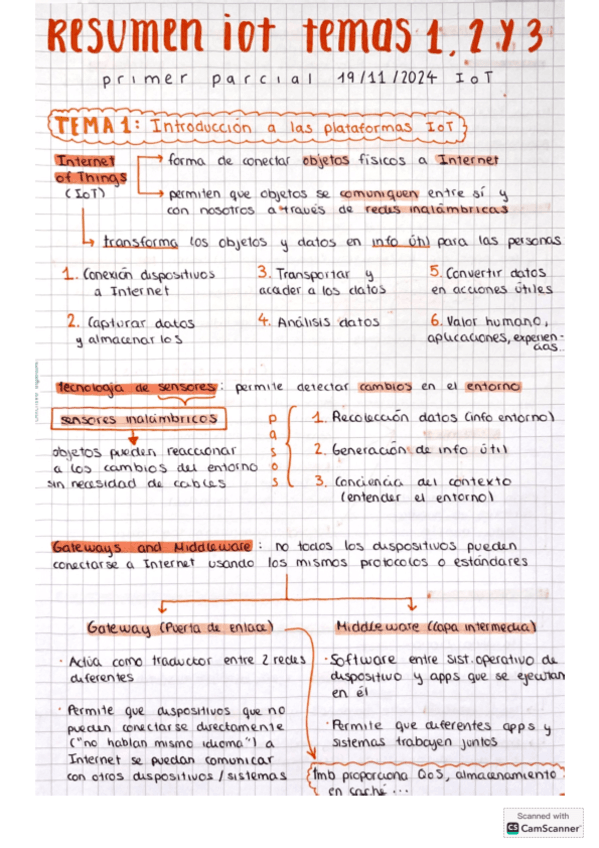 Resumen iot temas 1, 2 y 3
primer parcial 19/11/2024 IoT
TEMA 1: Introducción a las plataformas IoT
Internet
of Things
(IoT)
forma de conectar objetos físicos a Internet
permiten que objetos se comuniquen entre sí y
con nosotros a través de redes inalámbricas
transforma los objetos y datos en info útil para las personas
1. Conexión dispositivos
a Internet
2. Capturar datos
y almacenarlos
3. Transportar y
acceder a los datos
4. Análisis datos
5. Convertir datos
en acciones útiles
6. Valor humano,
aplicaciones, experien-
cias..
Tecnología de sensores: permite detectar cambios en el entorno
sensores inalámbricos
objetos pueden reaccionar
a los cambios del entorno
sin necesidad de cables
pasos
1. Recolección datos (info entorno)
2. Generación de info útil
3. Conciencia del contexto
(entender el entorno)
Gateways and Middleware: no todos los dispositivos pueden
conectarse a Internet usando los mismos protocolos o estándares
Gateway (Puerta de enlace)
· Actúa como traductor entre 2 redes
diferentes
· Permite que dispositivos que no
pueden conectarse directamente
("no hablan mismo idioma") a
Internet se puedan comunicar
con otros dispositivos / sistemas
Middleware (capa intermedia)
· Software entre sist. operativo de
dispositivo y apps que se ejecutan
en él
· Permite que diferentes apps y
sistemas trabajen juntos
tmb proporciona QoS, almacenamiento
en caché...
Scanned with
CS CamScanner